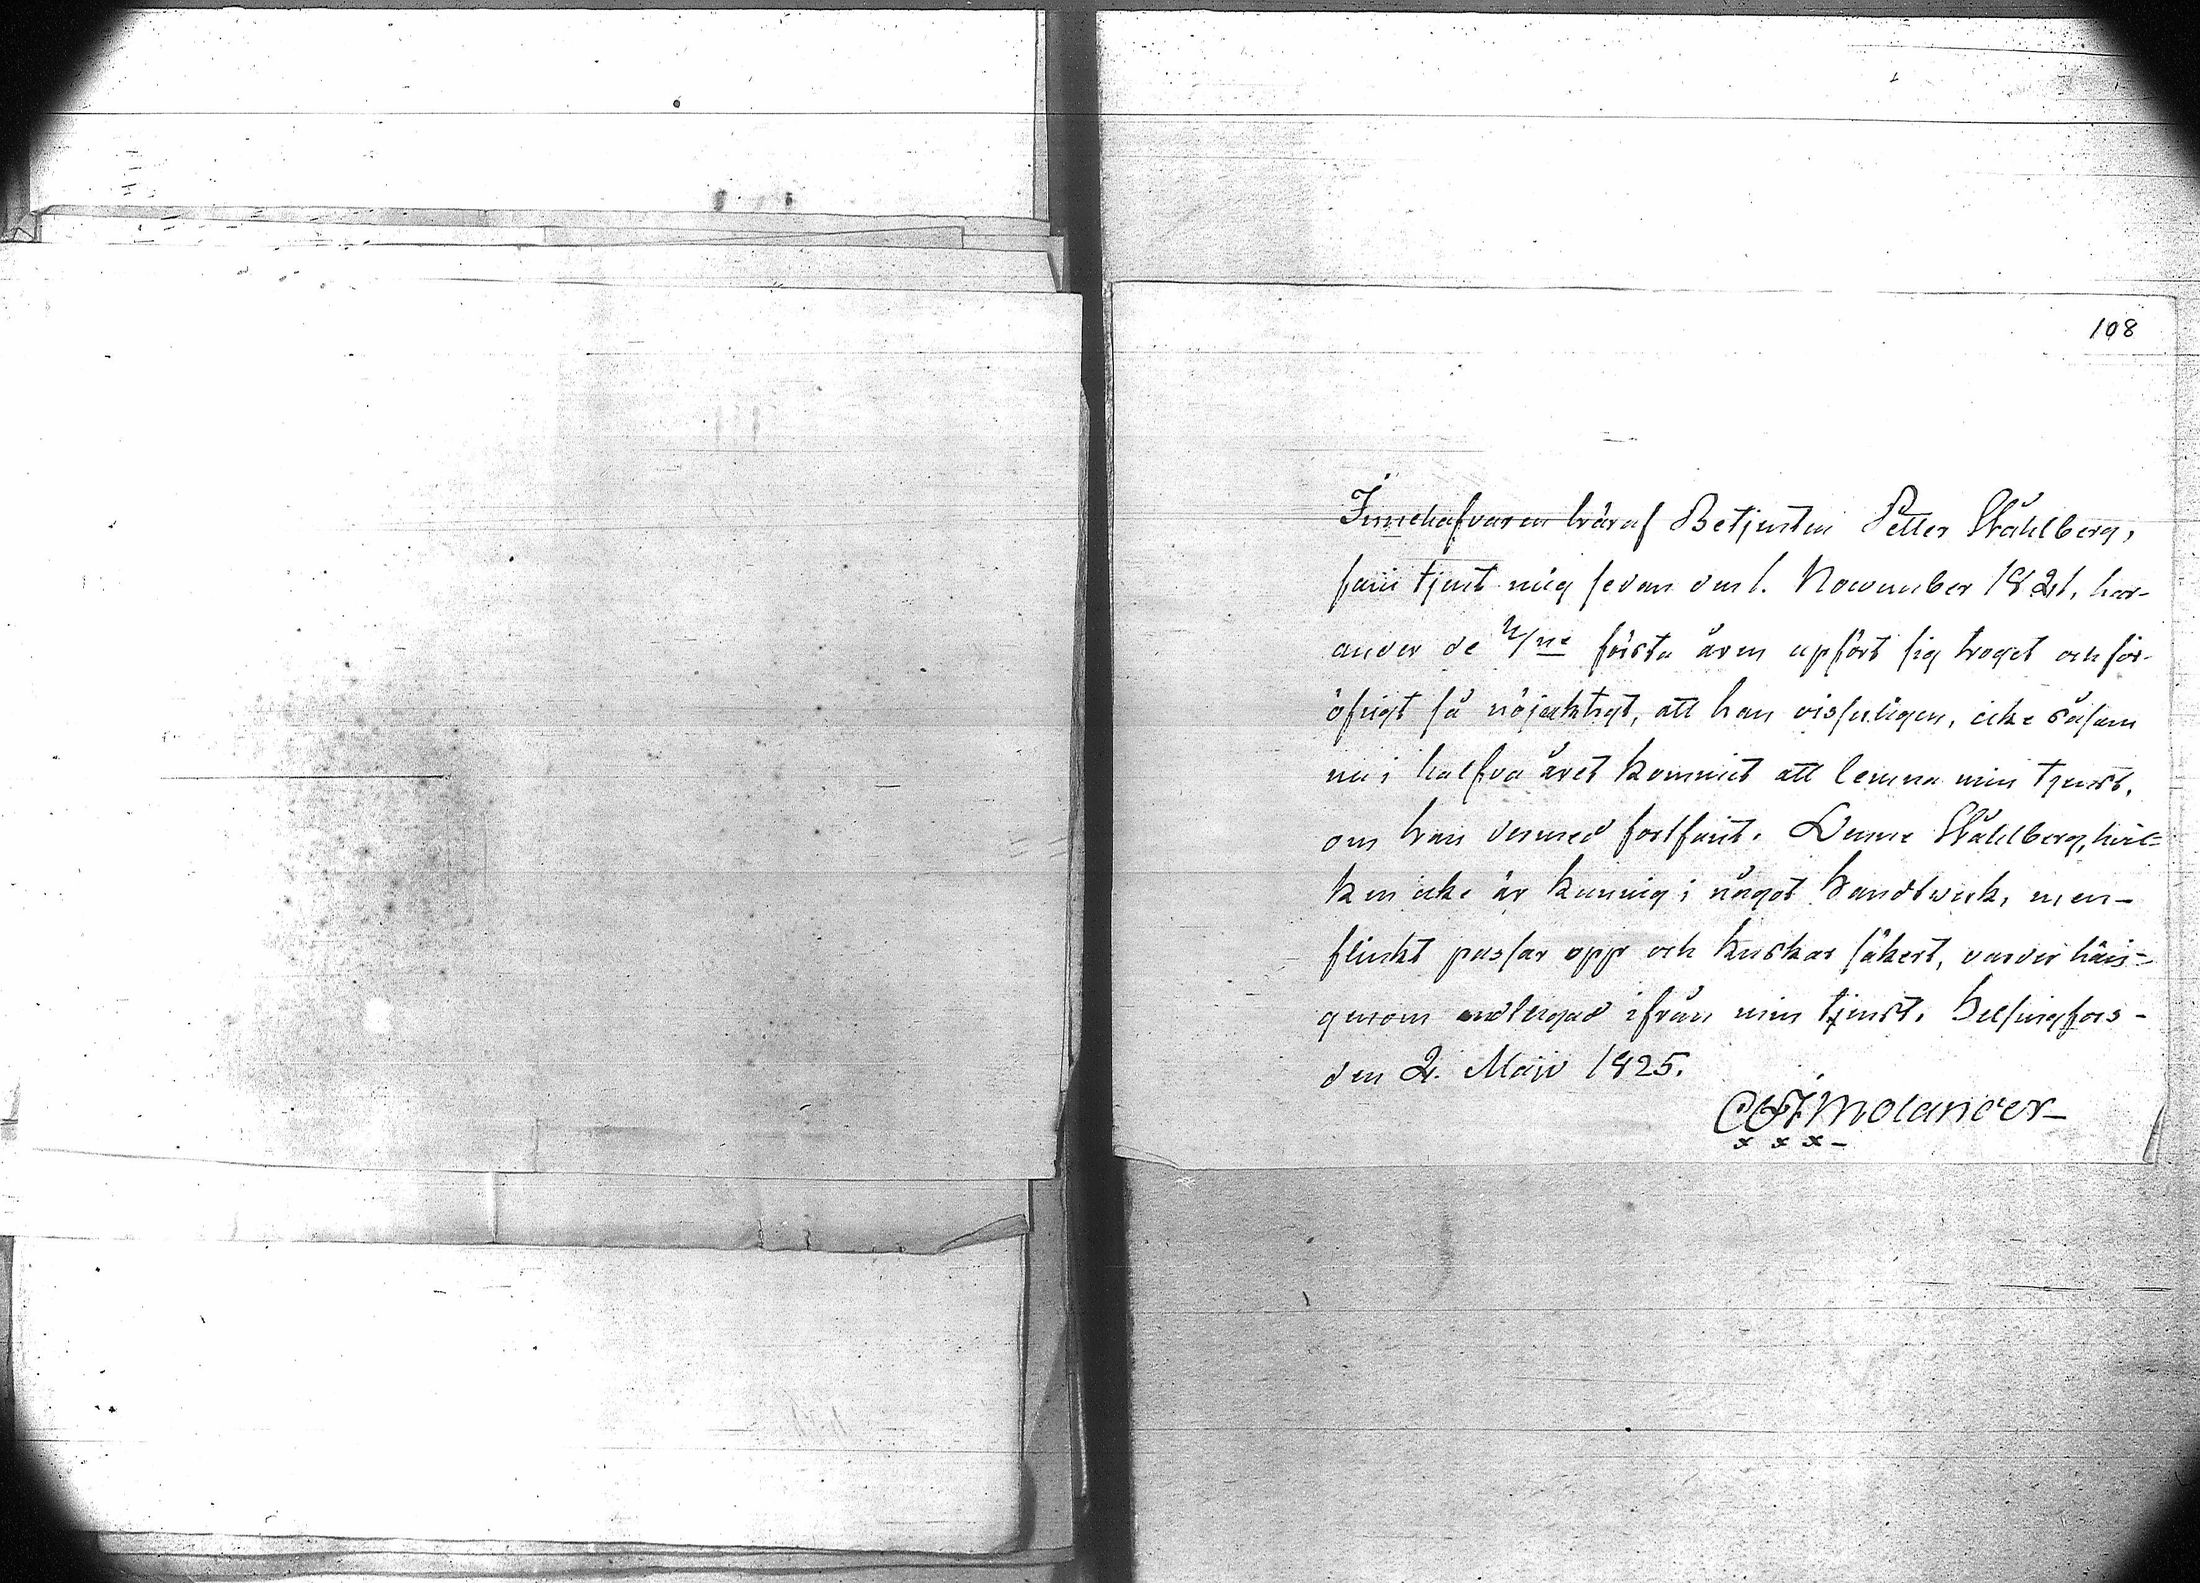 108
Innehafvaren häraf Betjenten Petter Wåhlberg,
som tjent mig sedan den 1. November 1821, har
under de första åren upfört sig troget och för
öfrigt så nöjaktigt, att han visserligen, icke såsom
nu i halfva året kommit att lemna min tjenst,
om han dermed fortfarit. Denne Wåhlberg, hvil-
ken icke är kunnig i något handtwerk, men
flinkt passar opp och kuskar säkert, varder häri-
genom endlegad ifrån min tjenst. Helsingfors
den 2. Maji 1825.
Molander